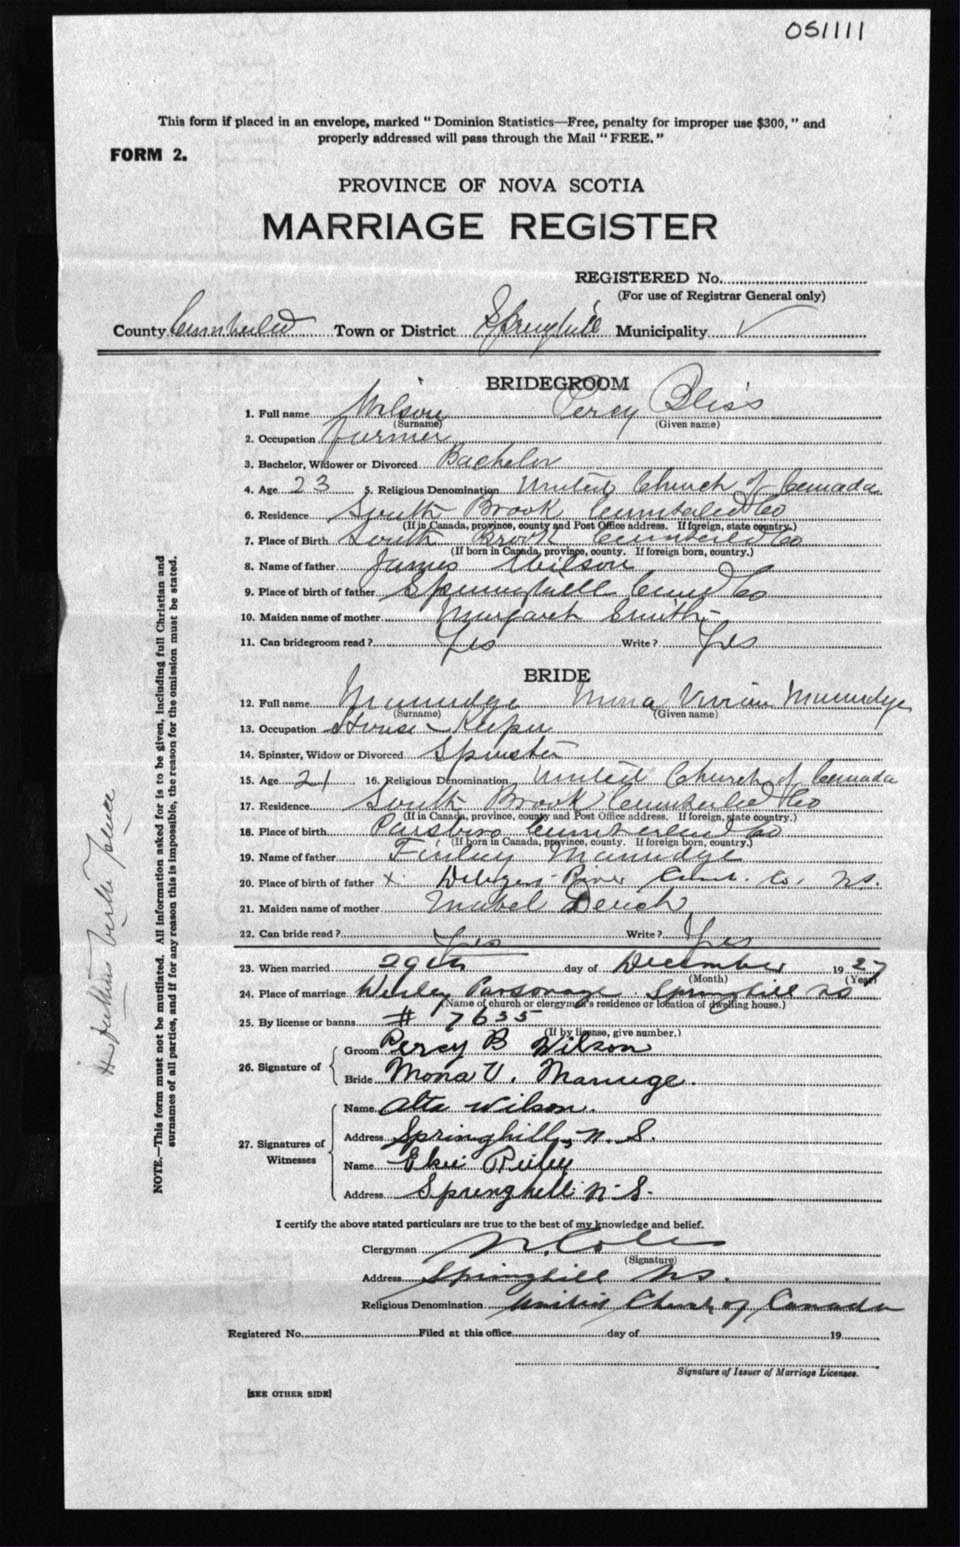 051111
This form if placed in an envelope, marked "Dominion Statistics—Free, penalty for improper use $300," and
properly addressed will pass through the Mail "FREE."
FORM 2.
PROVINCE OF NOVA SCOTIA
MARRIAGE REGISTER
REGISTERED No.
(For use of Registrar General only)
County Cumberland Town or District Springhill Municipality ✓
BRIDEGROOM
1. Full name Wilson Percy Bliss
(Surname) (Given name)
2. Occupation farmer
3. Bachelor, Widower or Divorced Bachelor
4. Age 23 5. Religious Denomination United Church of Canada
6. Residence South Brook Cumberland Co
(If in Canada, province, county and Post Office address. If foreign, state country.)
7. Place of Birth South Brook Cumberland Co
(If born in Canada, province, county. If foreign born, country.)
8. Name of father James Wilson
9. Place of birth of father Springhill Cumd Co
10. Maiden name of mother Margaret Smith
11. Can bridegroom read? Yes Write? Yes
BRIDE
12. Full name Mona Vivian
(Surname) (Given name)
13. Occupation House Keeper
14. Spinster, Widow or Divorced Spinster
15. Age 21 16. Religious Denomination United Church of Canada
17. Residence South Brook Cumberland Co
(If in Canada, province, county and Post Office address. If foreign, state country.)
18. Place of birth Parsboro Cumberland Co
(If born in Canada, province, county. If foreign born, country.)
19. Name of father Finley
20. Place of birth of father x River Cum. Co. N.S.
21. Maiden name of mother Mabel
22. Can bride read? Yes Write? Yes
23. When married 29th day of December 1927
(Month) (Year)
24. Place of marriage Wesley Parsonage Springhill NS
(Name of church or clergyman's residence or location of dwelling house.)
25. By license or banns # 7635
(If by license, give number.)
26. Signature of Groom Percy B Wilson
Bride Mona V.
27. Signatures of Witnesses
Name Alta Wilson.
Address Springhill, N.S.
Name Riley
Address Springhill N.S.
I certify the above stated particulars are true to the best of my knowledge and belief.
Clergyman
(Signature)
Address Springhill NS.
Religious Denomination United Church of Canada
Registered No. Filed at this office day of 19
Signature of Issuer of Marriage Licenses.
[SEE OTHER SIDE]
NOTE.—This form must not be mutilated. All information asked for is to be given, including full Christian and
surnames of all parties, and if for any reason this is impossible, the reason for the omission must be stated.
Fathers birth place